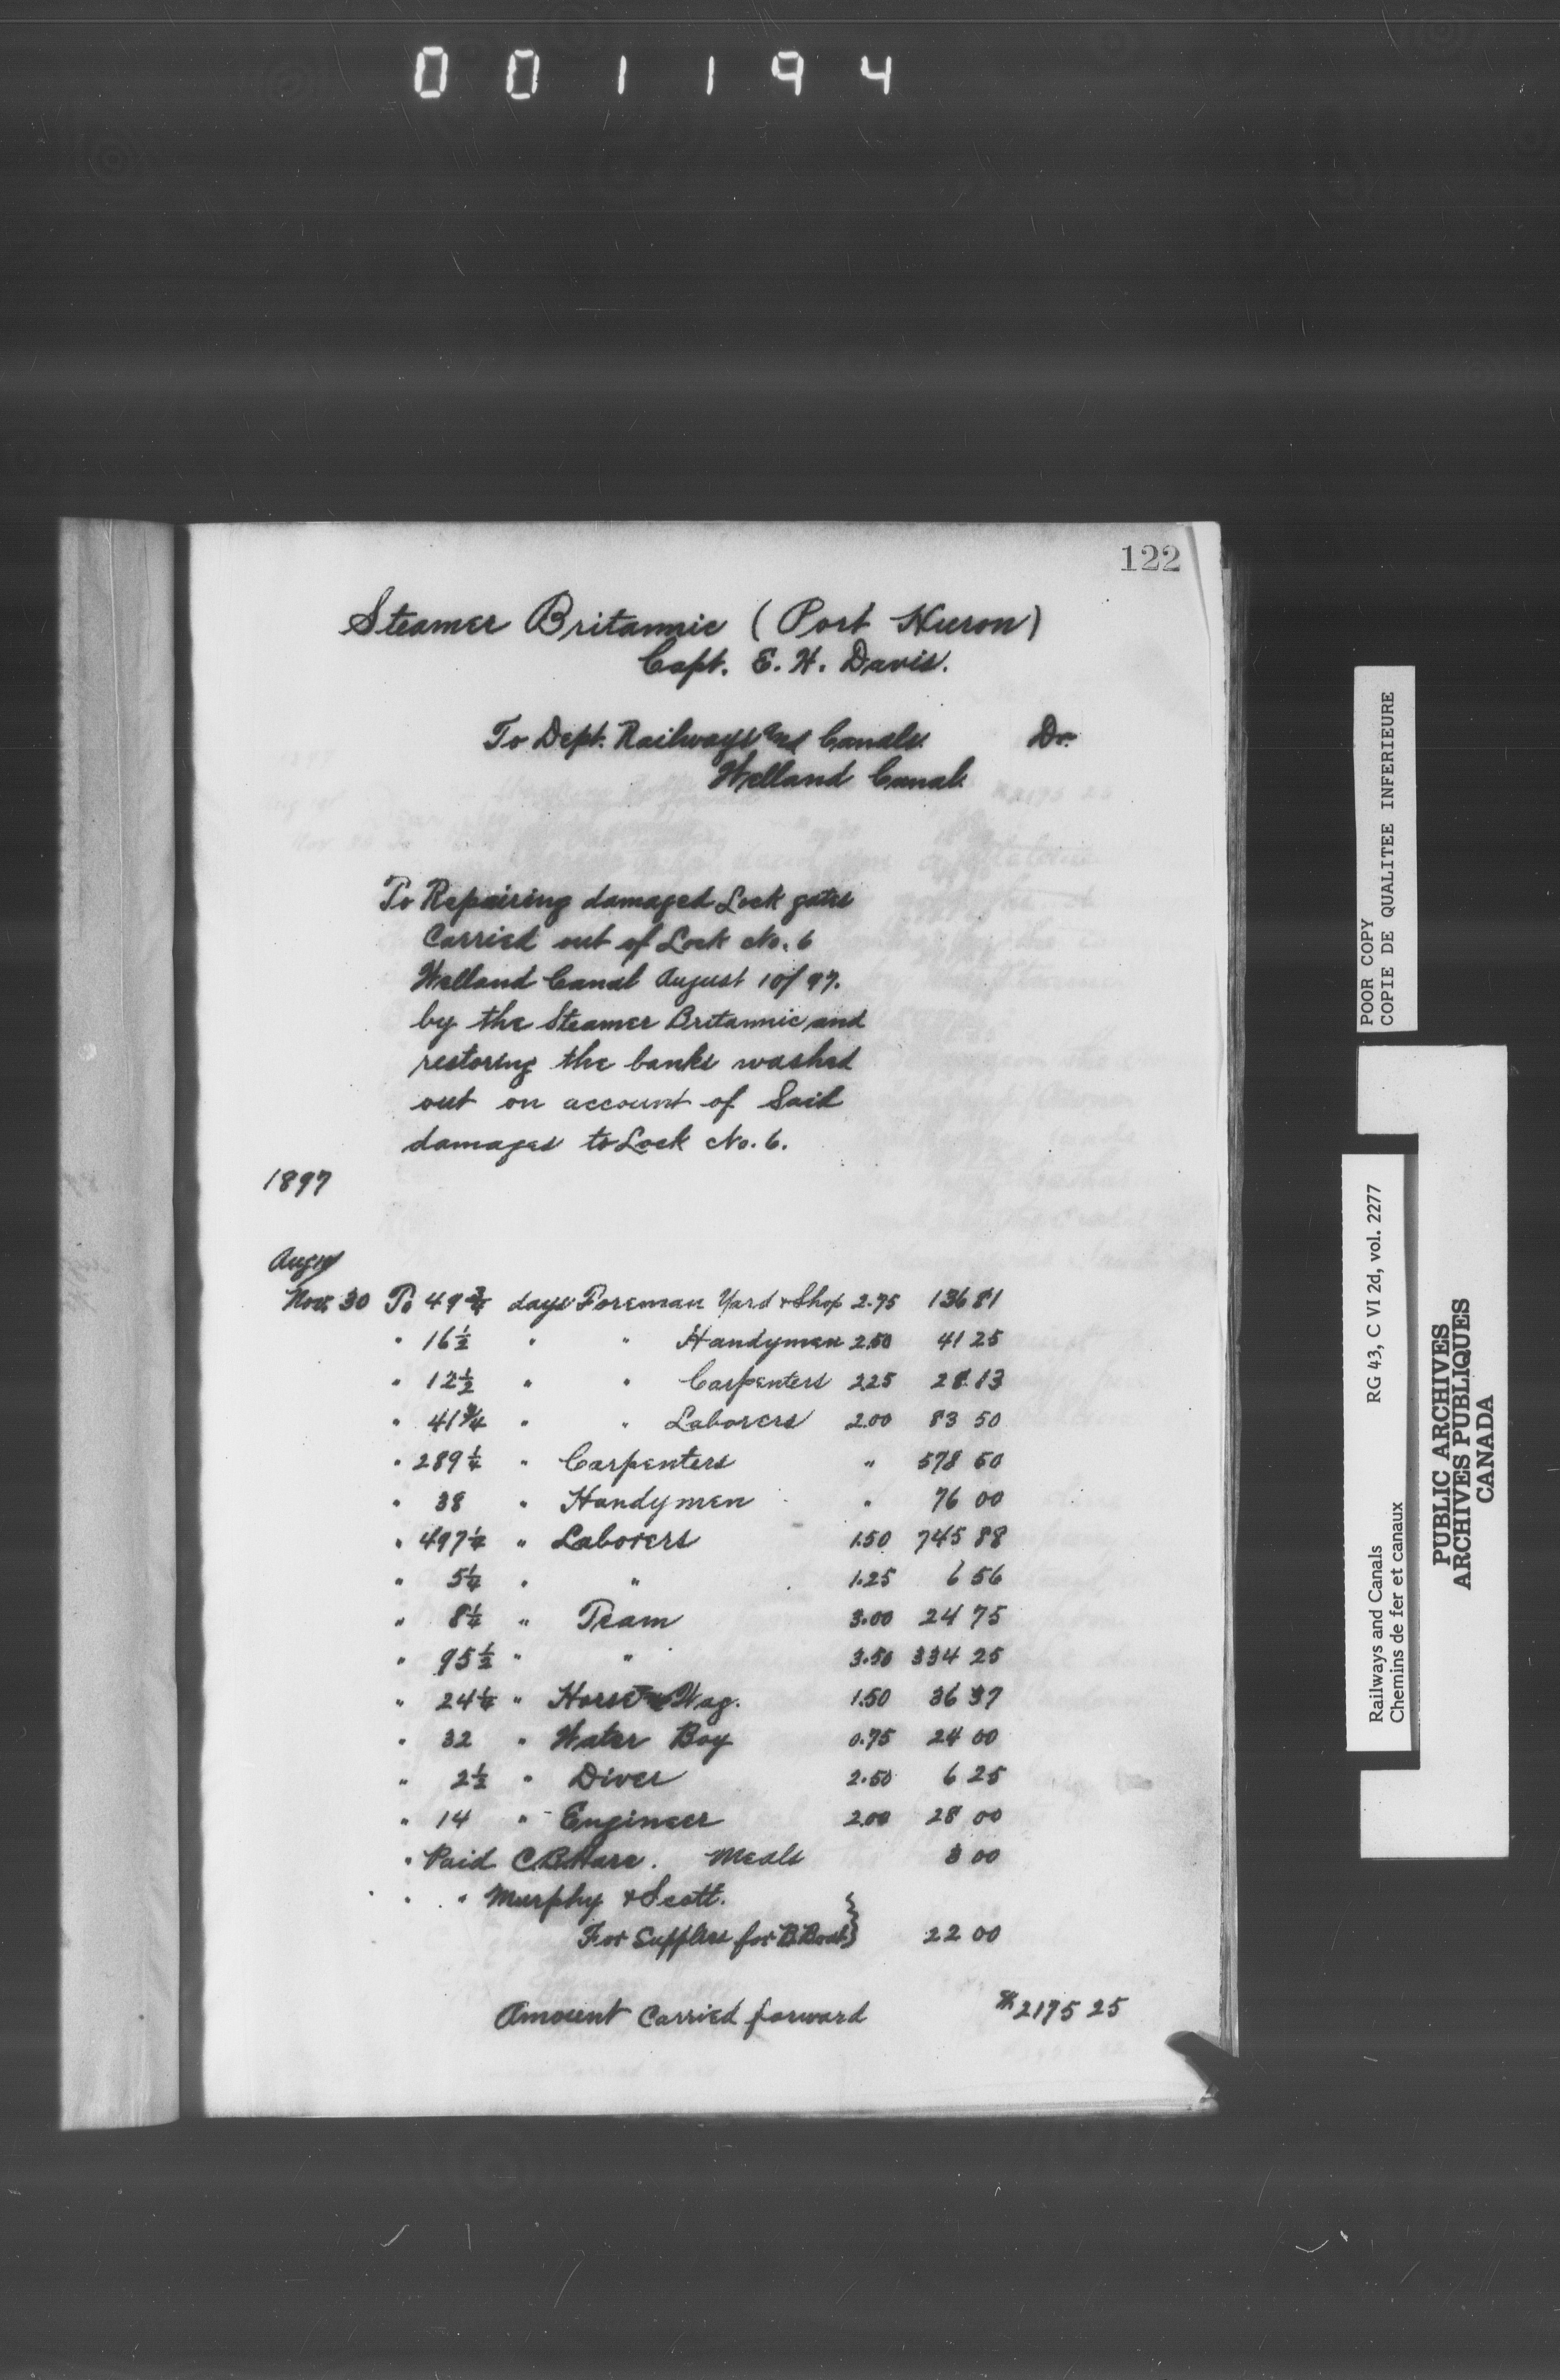 001194
122
Steamer Britannic (Port Huron)
Capt. E. H. Davis.
To Dept. Railways and Canals. Dr.
Welland Canal.
To Repairing damaged Lock gates
Carried out of Lock No. 6
Welland Canal August 10/97.
by the Steamer Britannic and
restoring the banks washed
out on account of Said
damages to Lock No. 6.
1897
Aug
Nov. 30 To 49 3/4 days Foreman Yard & Shop 2.75 136 81
" 16 1/2 " " Handymen 2.50 41 25
" 12 1/2 " " Carpenters 2.25 28 13
" 41 3/4 " " Laborers 2.00 83 50
" 289 1/4 " Carpenters " 578 50
" 38 " Handymen " 76 00
" 497 1/4 " Laborers 1.50 745 88
" 5 1/4 " " 1.25 6 56
" 8 1/4 " Team 3.00 24 75
" 95 1/2 " " 3.50 334 25
" 24 1/4 " Horse & Wag. 1.50 36 37
" 32 " Water Boy 0.75 24 00
" 2 1/2 " Diver 2.50 6 25
" 14 " Engineer 2.00 28 00
" Paid C.B. Hare. Meals 3 00
" " Murphy & Scott.
For Supplies for B. Boat} 22 00
Amount Carried forward $2175 25
POOR COPY
COPIE DE QUALITEE INFERIEURE
Railways and Canals RG 43, C VI 2d, vol. 2277
Chemins de fer et canaux
PUBLIC ARCHIVES
ARCHIVES PUBLIQUES
CANADA